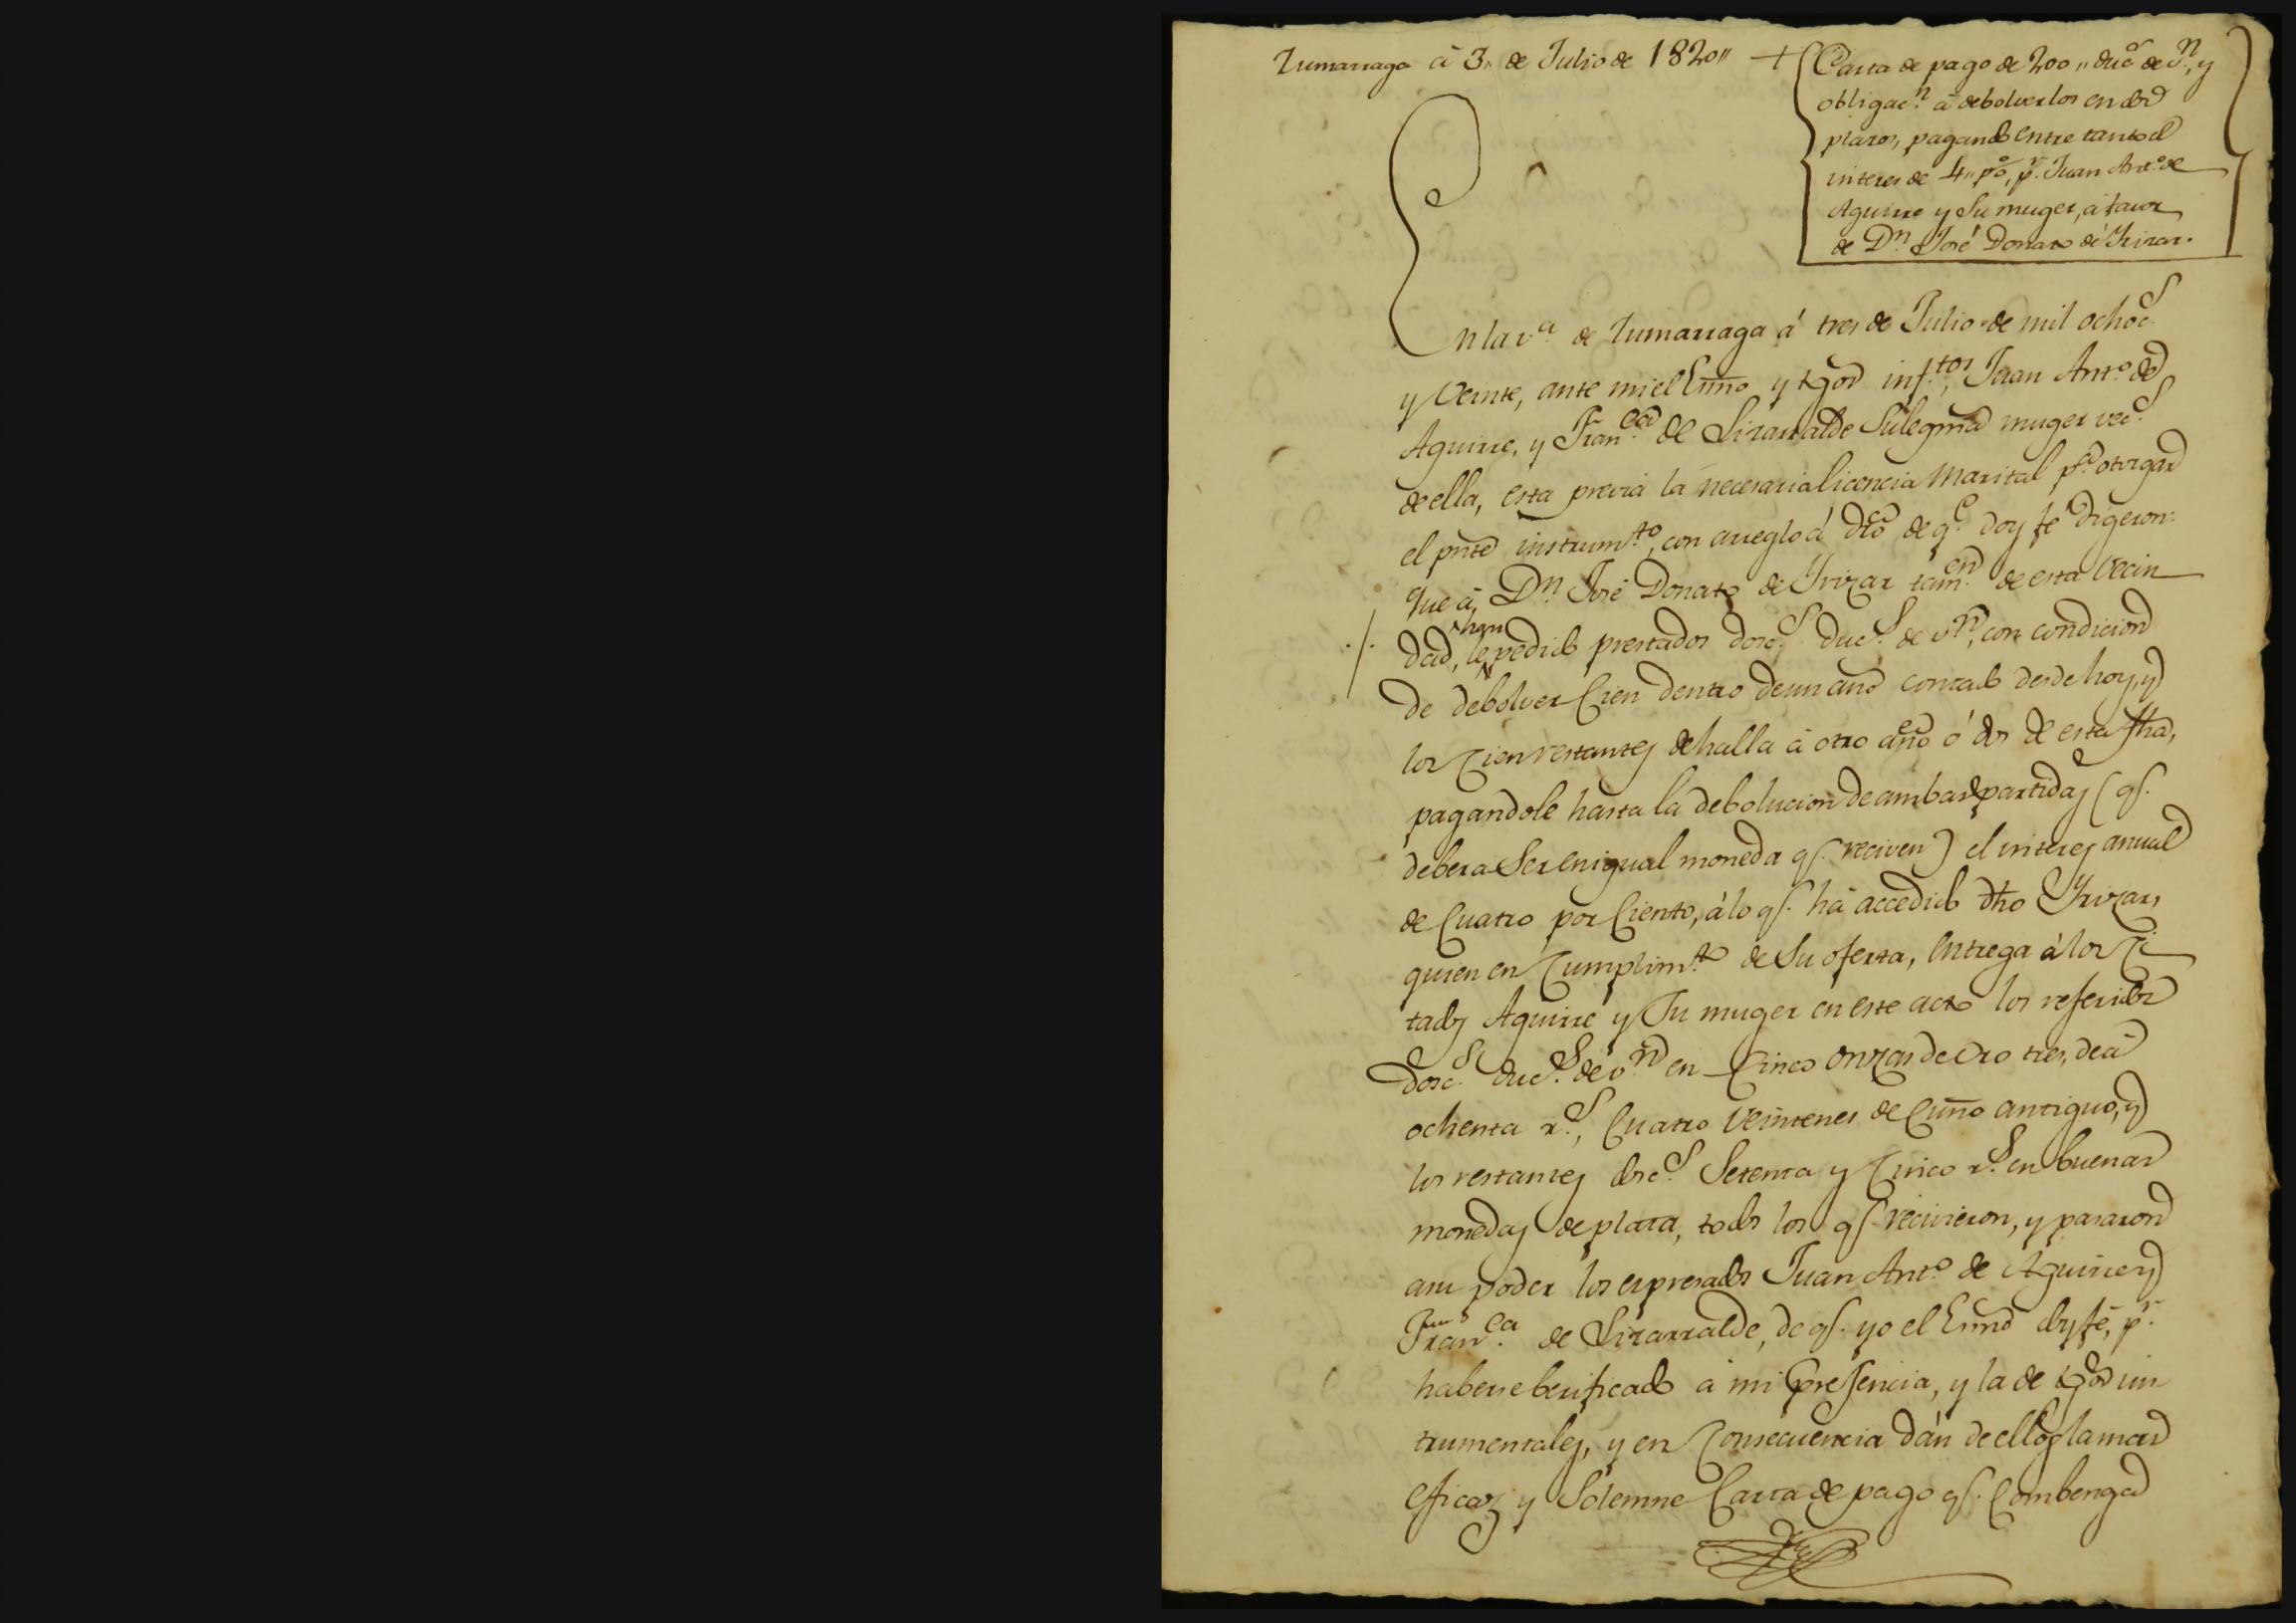 Zumarraga á 3,, de Julio de 1820,, +
Carta de pago de 200,, duc.s de v.n, y
obligac.n á debolverlos en dos
plazos, pagando entre tanto el
interes de 4,, p%, p.r Juan Ant.o de
Aguirre y Su muger, á favor
de D.n José Donato de Yrizar.
En la v.a de Zumarraga á tres de Julio de mil ochoc.s
y Veinte, ante mi el Essno y tgos insf.tos, Juan Ant.o de
Aguirre, y Fran.ca de Lizarralde Su legma muger vec.s
de ella, esta previa la necesaria licencia Marital p.a otorgar
el pnte instrum.to, con arreglo á dro de q.e doy fe digeron:
Que á D.n José Donato de Yrizar tam.en de esta Vecin
./. han
dad, le pedido prestados dosc.s duc.s de v.n, con condicion
de debolver Cien dentro de un año contado desde hoy, y
los Cien restantes de halla á otro año ó dos de esta fha,
pagandole hasta la debolucion de ambas partidas (q.e
debera Ser en igual moneda q.e reciven) el interes anual
de Cuatro por Ciento, á lo q.e há accedido dho Yrizar,
quien en Cumplim.to de Su oferta, Entrega á los Ci
tados Aguirre y Su muger en este acto los referidos
dosc.s duc.s de v.n en Cinco onzas de Oro tres, de á
ochenta r.s, Cuatro Veintenes de Cuño antiguo, y
los restantes dosc.s Setenta y Cinco r.s en buenas
monedas de plata, todos los q.e recivieron, y pasaron
a su poder los espresados Juan Ant.o de Aguirre y
Fran.ca de Lizarralde, de q.e yo el Essno doy fé, p.r
haberse berificado á mi presencia, y la de tgos ins
trumentales, y en Consecuencia dán de ello la mas
eficaz y Solemne Carta de pago q.e Combenga